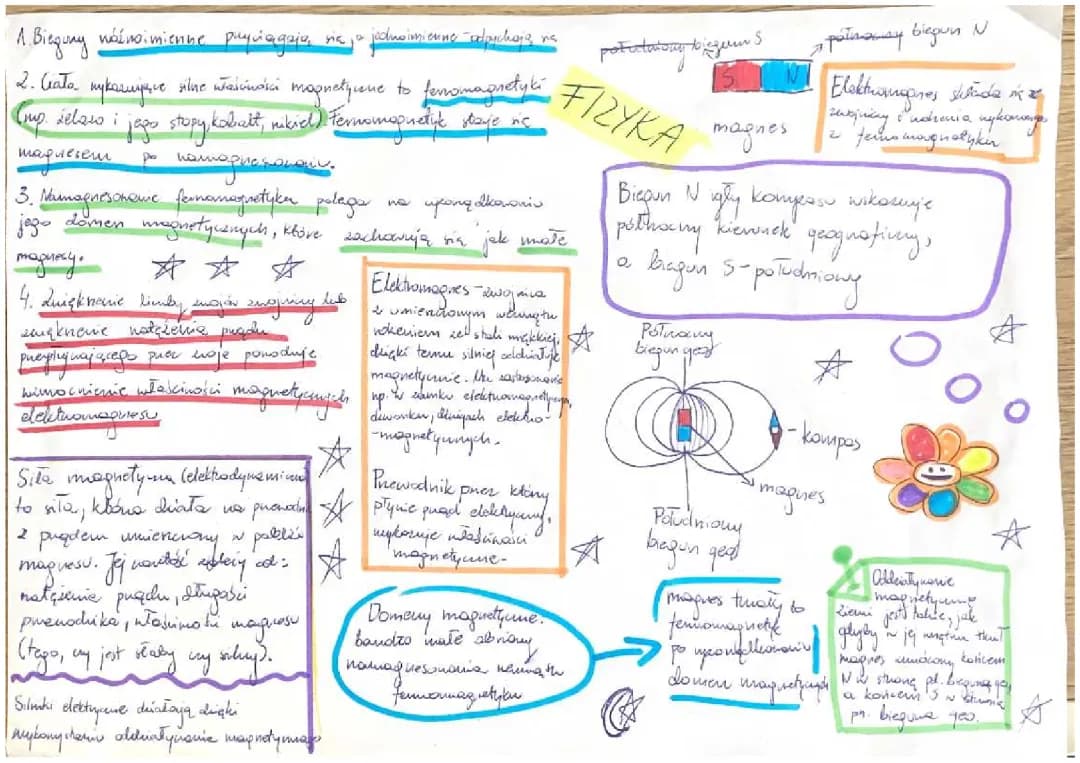 1. Bieguny różnoimienne przyciągają się, a jednoimienne - odpychają się
2. Ciała wykazujące silne właściwości magnetyczne to ferromagnetyki
(np. żelazo i jego stopy, kobalt, nikiel). Ferromagnetyk staje się
magnesem po namagnesowaniu.
3. Namagnesowanie ferromagnetyka polega na uporządkowaniu
jego domen magnetycznych, które zachowują się jak małe
magnesy.
4. Zwiększenie liczby zwojów zwojnicy lub
zwiększenie natężenia prądu
przepływającego przez zwoje powoduje
wzmocnienie właściwości magnetycznych
elektromagnesu
FIZYKA
południowy biegun S
północny biegun N
S N
magnes
Elektromagnes składa się ze
zwojnicy i rdzenia wykonanego
z ferromagnetyku
Biegun N igły kompasu wskazuje
północny kierunek geograficzny,
a biegun S - południowy
Elektromagnes - zwojnica
z umieszczonym wewnątrz
rdzeniem ze stali miękkiej,
dzięki temu silniej oddziałuje
magnetycznie. Ma zastosowanie
np. w zamku elektromagnetycznym,
dzwonku, dźwigach elektro-
-magnetycznych.
Przewodnik przez który
płynie prąd elektryczny,
wykazuje właściwości
magnetyczne.
Północny
biegun geo
kompas
magnes
Południowy
biegun geo
Siła magnetyczna (elektrodynamiczna)
to siła, która działa na przewodnik
z prądem umieszczony w pobliżu
magnesu. Jej wartość zależy od:
natężenia prądu, długości
przewodnika, właściwości magnesu
(tego, czy jest słaby czy silny).
Silniki elektryczne działają dzięki
wykorzystaniu oddziaływania magnetycznego
Domeny magnetyczne:
bardzo małe obszary
namagnesowania wewnątrz
ferromagnetyku
magnes trwały to
ferromagnetyk
po uporządkowaniu
domen magnetycznych
Oddziaływanie
magnetyczne
Ziemi jest takie, jak
gdyby w jej wnętrzu tkwił
magnes zwrócony końcem
N w stronę pł. bieguna geo,
a końcem S w stronę
pn. bieguna geo.